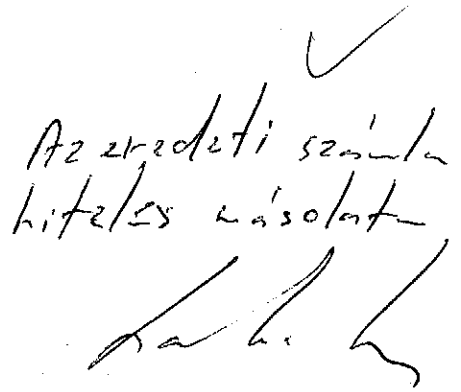 Az eredeti számla
hiteles másolata